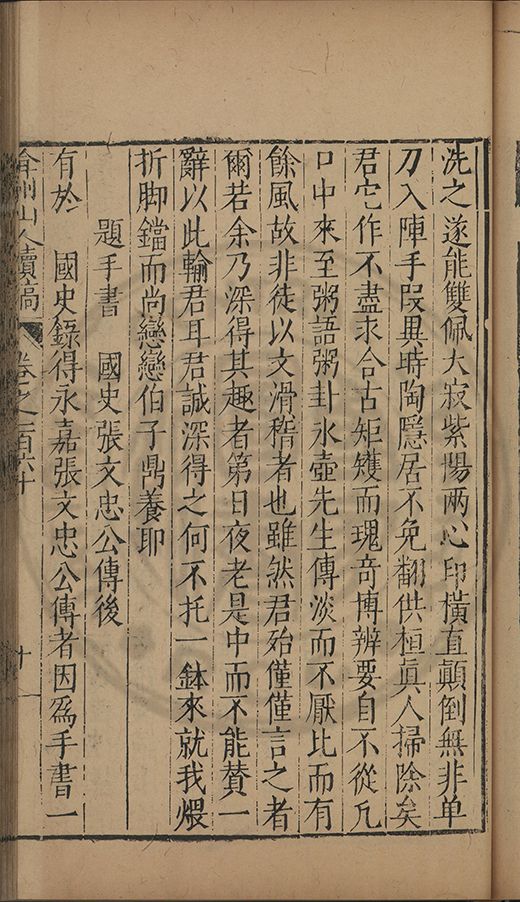 洗之遂能雙佩大寂紫陽兩心印橫直顛倒無非单
刀入陣手叚異時陶隱居不免翻供桓眞人掃除矣
君它作不盡求合古矩矱而瑰奇博辨要自不從凢
口中來至粥語粥卦氷壺先生傳淡而不厭比而有
餘風故非徒以文滑稽者也雖然君殆僅僅言之者
爾若余乃深得其趣者第日夜老是中而不能賛一
辭以此輸君耳君誠深得之何不托一鉢來就我煨
折脚鐺而尚戀戀伯子鼎養耶
題手書　國史張文忠公傳後
有於　國史錄得永嘉張文忠公傳者因爲手書一
弇州山人續稿　卷之一百六十　十